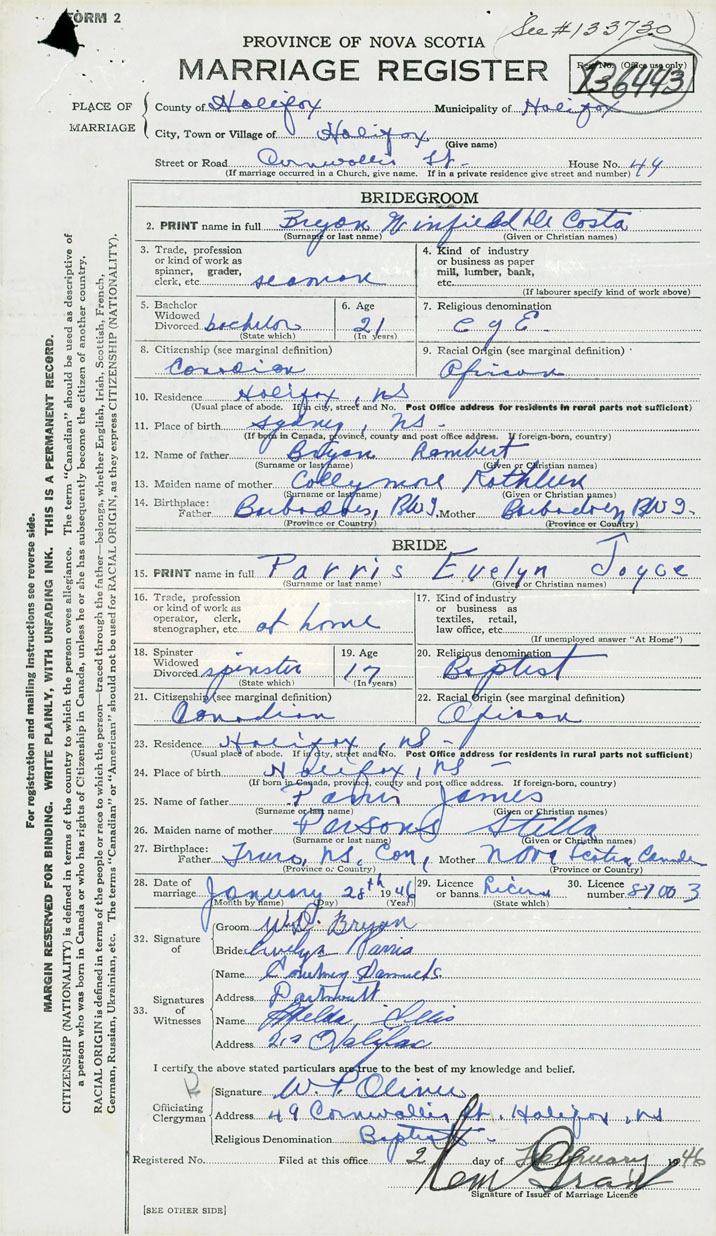 FORM 2
(See #133730)
PROVINCE OF NOVA SCOTIA
MARRIAGE REGISTER
Reg. No. (Office use only)
136443
PLACE OF MARRIAGE
County of Halifax Municipality of Halifax
City, Town or Village of Halifax
(Give name)
Street or Road Cornwallis St. House No. 49
(If marriage occurred in a Church, give name. If in a private residence give street and number)
BRIDEGROOM
2. PRINT name in full Bryan Winfield De Costa
(Surname or last name) (Given or Christian names)
3. Trade, profession or kind of work as spinner, grader, clerk, etc. seaman
4. Kind of industry or business as paper mill, lumber, bank, etc.
(If labourer specify kind of work above)
5. Bachelor Widowed Divorced bachelor
(State which)
6. Age 21
(In years)
7. Religious denomination C of E.
8. Citizenship (see marginal definition) Canadian
9. Racial Origin (see marginal definition) African
10. Residence Halifax, NS
(Usual place of abode. If in city, street and No. Post Office address for residents in rural parts not sufficient)
11. Place of birth Sydney, NS.
(If born in Canada, province, county and post office address. If foreign-born, country)
12. Name of father Bryan
(Surname or last name) (Given or Christian names)
13. Maiden name of mother Collymore Kathleen
(Surname or last name) (Given or Christian names)
14. Birthplace: Father Barbadoes, BWI, Mother Barbadoes BWI.
(Province or Country) (Province or Country)
BRIDE
15. PRINT name in full Parris Evelyn Joyce
(Surname or last name) (Given or Christian names)
16. Trade, profession or kind of work as operator, clerk, stenographer, etc. at home
17. Kind of industry or business as textiles, retail, law office, etc.
(If unemployed answer "At Home")
18. Spinster Widowed Divorced spinster
(State which)
19. Age 17
(In years)
20. Religious denomination Baptist
21. Citizenship (see marginal definition) Canadian
22. Racial Origin (see marginal definition) African
23. Residence Halifax, NS
(Usual place of abode. If in city, street and No. Post Office address for residents in rural parts not sufficient)
24. Place of birth Halifax, NS
(If born in Canada, province, county and post office address. If foreign-born, country)
25. Name of father Parris James
(Surname or last name) (Given or Christian names)
26. Maiden name of mother Parsons Stella
(Surname or last name) (Given or Christian names)
27. Birthplace: Father Truro, NS, Can, Mother Nova Scotia Canada
(Province or Country) (Province or Country)
28. Date of marriage January 28th 1946
(Month by name) (Day) (Year)
29. Licence or banns Licence
(State which)
30. Licence number 87003
32. Signature of
Groom W. D. Bryan
Bride Evelyn Parris
33. Signatures of Witnesses
Name Courtney
Address Dartmouth
Name Ellis
Address Halifax
I certify the above stated particulars are true to the best of my knowledge and belief.
Officiating Clergyman
Signature W. P. Oliver
Address 49 Cornwallis St. Halifax, NS
Religious Denomination Baptist
Registered No. Filed at this office 2 day of February 1946
Signature of Issuer of Marriage Licence
[SEE OTHER SIDE]
For registration and mailing Instructions see reverse side.
MARGIN RESERVED FOR BINDING. WRITE PLAINLY, WITH UNFADING INK. THIS IS A PERMANENT RECORD.
CITIZENSHIP (NATIONALITY) is defined in terms of the country to which the person owes allegiance. The term "Canadian" should be used as descriptive of
a person who was born in Canada or who has rights of Citizenship in Canada, unless he or she has subsequently become the citizen of another country.
RACIAL ORIGIN is defined in terms of the people or race to which the person—traced through the father—belongs, whether English, Irish, Scottish, French,
German, Russian, Ukrainian, etc. The terms "Canadian" or "American" should not be used for RACIAL ORIGIN, as they express CITIZENSHIP (NATIONALITY).